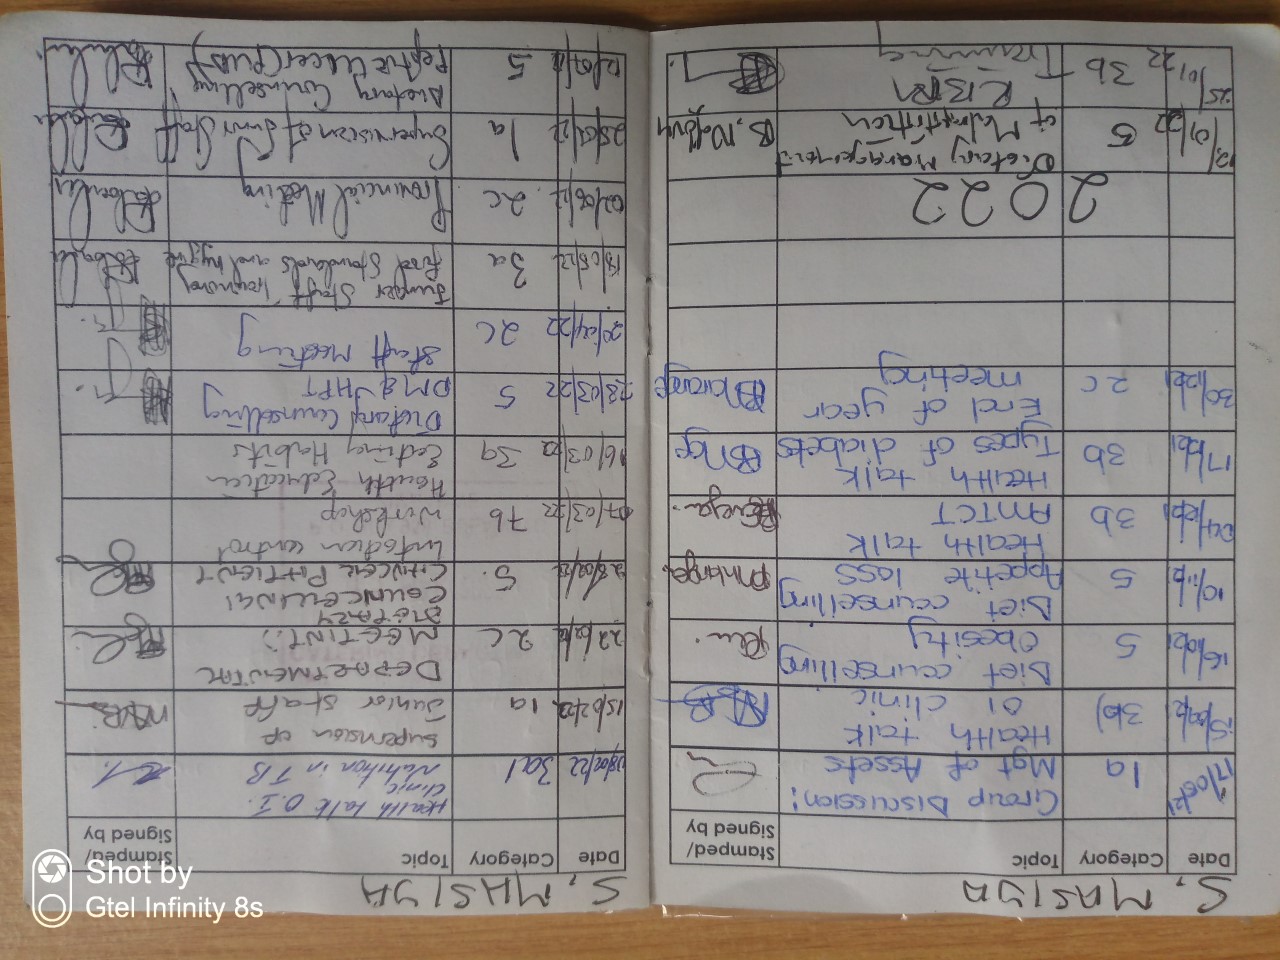 S. MASIYA
Date Category Topic Stamped/
Signed by
1a Group Discussion:
Mgt of Assets
3b) Health talk
OI clinic
5 Diet counselling
Obesity
5 Diet counselling
Appetite loss
3b Health talk
PMTCT
3b Health talk
Types of diabets
2c End of year
meeting
2022
5 Dietary Management
of Malnutrition
25/01/22 3b RBM
Training
S. MASIYA
Date Category Topic Stamped/
Signed by
08/02/22 3a1 Health talk O.I.
clinic
Nutrition in TB
15/02/22 1a Supervision of
Junior staff
2c DEPARTMENTAL
MEETING
5. DIETARY
COUNCELLING
CANCER PATIENT
07/03/22 7b Infection control
workshop
16/03/22 3a Health Education
Eating Habits
23/03/22 5 Dietary Counselling
DM & HPT
20/04/22 2C Staff Meeting
3a Junior Staff Training
food Standards and hygiene
2c Provincial Meeting
1a Supervision of Junior Staff
5 Dietary Counselling
Peptic Ulcer (PUD)
Shot by
Gtel Infinity 8s